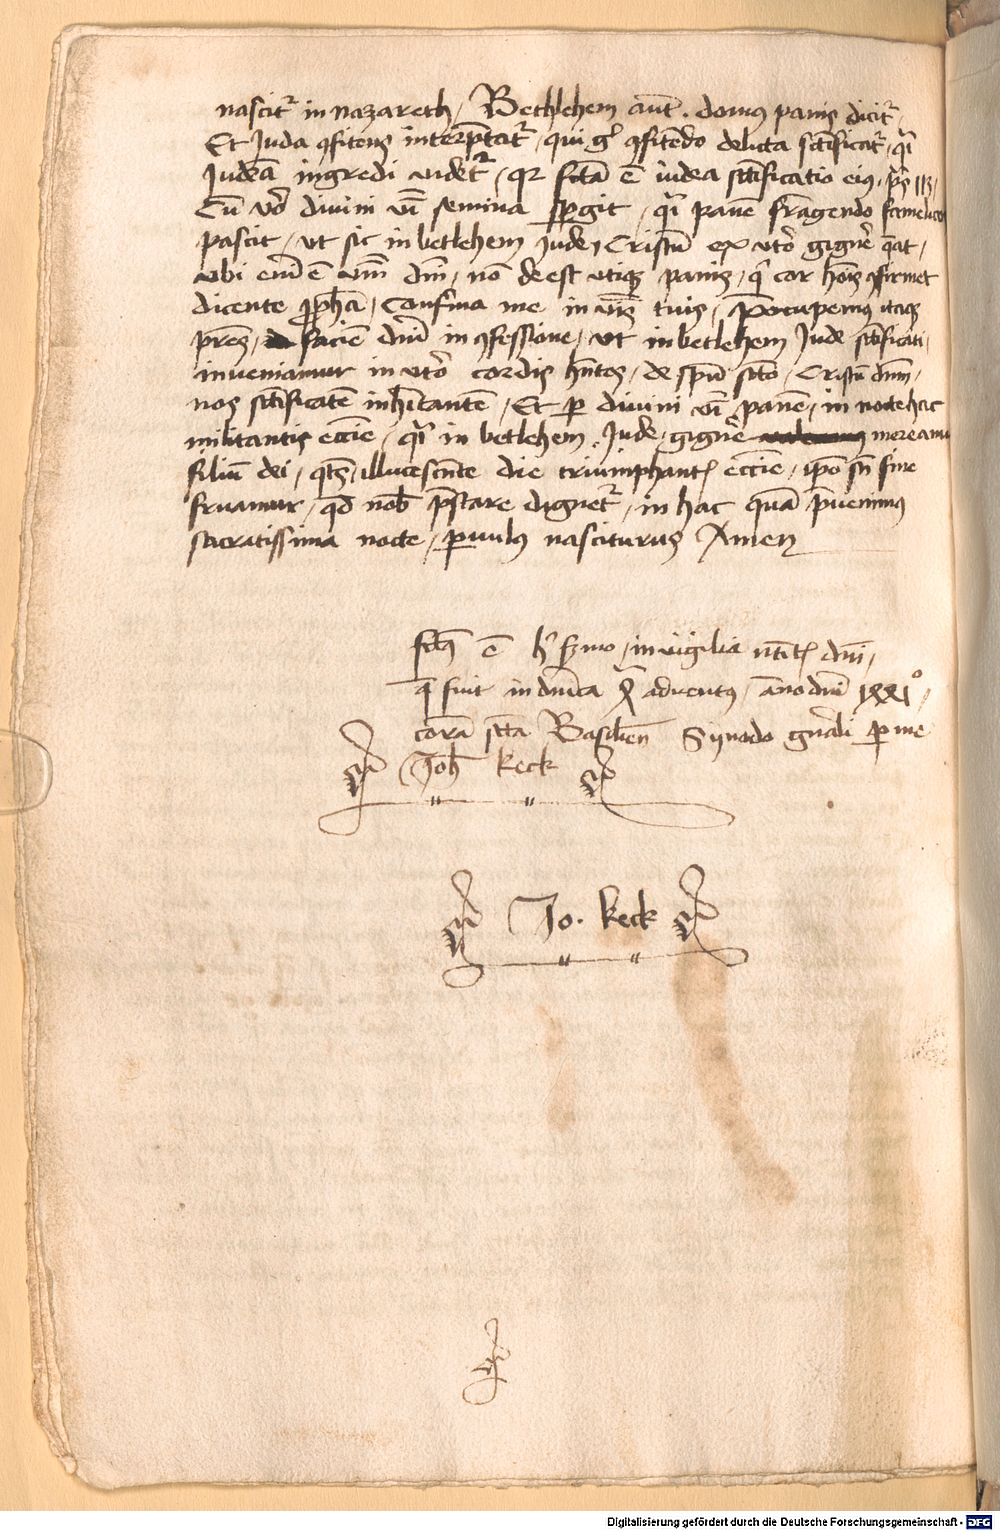 nascit᷑ in nazareth / Bethlehem aut̄ . domus panis dicit᷑ /
Et Juda ꝯfitens interp̄tat᷑ / qui gͦ ꝯfitēdo delicta sc̄tificat᷑ / qͣi
Judeā ingredi videt᷑ / qꝛ fc̄ta ē iudea sc̄tificatio eius / ps 113 /
Cū vō divini v̄i semina sp̱git / qͣi panē frāgendo famelicos
pascit / vt sic in betlehem Jude / Cristū ex vtō gignē q̄at /
vbi eni ē v̄m dn̄i / nō deest vtiqꝫ panis / qͥ cor hōis ꝯfirmet
dicente ꝓphā / Confirma me in v̄is tuis / p̄ocupemus itaqꝫ
p̄res / faciē dn̄i in ꝯfessione / vt in betlehem Jude sc̄tificati /
inveniamur in vtō cordis hn̄tes / de sp̄u scto / Cristū dnm /
nos sc̄tificatē inhītantē / Et ꝑ divini v̄i panē / in nocte hac
militantis ecc̄ie / qͣi in betlehem / Jude / gignē mereamur
filiū dei / qͣtꝰ / illucescēte die triumphantꝭ ecc̄ie / ip̄o sn̄ fine
fruamur / qd nob̄ p̄stare dignet᷑ / in hac quā p̄venimus
sacratissima nocte / ꝑvulus nasciturus Amen
fc̄tus ē h̓ s̓mo / in vigilia nt̄itꝭ dn̄i /
q̄ fuit in dn̄ica adventus / anno dn̄i
corā sc̄ta Basilien̄ Synodo gn̄ali ꝑ me
Joh̄ keck
Jo . keck
Digitalisierung gefördert durch die Deutsche Forschungsgemeinschaft - DFG